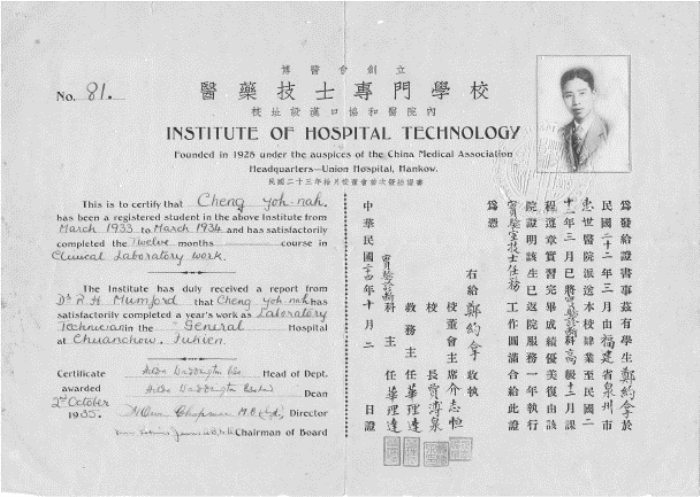 立創會醫博
校學門專士技藥醫
內院醫和協口漢設址校
No. 81.
INSTITUTE OF HOSPITAL TECHNOLOGY
Founded in 1928 under the auspices of the China Medical Association
Headquarters—Union Hospital, Hankow.
This is to certify that Cheng Yoh-nah.
has been a registered student in the above Institute from
March 1933 to March 1934 and has satisfactorily
completed the Twelve months course in
Clinical Laboratory work.
The Institute has duly received a report from
Dr P. H. Mumford that Cheng Yoh-nah has
satisfactorily completed a year's work as Laboratory
Technician in the "General Hospital
at Chuanchow, Fukien.
Certificate
awarded
2nd October
1935.
Head of Dept.
Dean
Chapman Director
Chairman of Board
為發給證書事茲有學生鄭約拿於
民國二十二年三月由福建省泉州市
惠世醫院派送本校肄業至民國二
十三年三月已將實驗診斷科高級十二月課
程遵章實習完畢成績優美復由該
院證明該生已返院服務一年執行
實驗室技士任務工作圓滿合給此證
為憑
右給鄭約拿收執
校董會主席
校長
教務主任華理達
實驗診斷科主任華理達
中華民國二十四年十月二日證